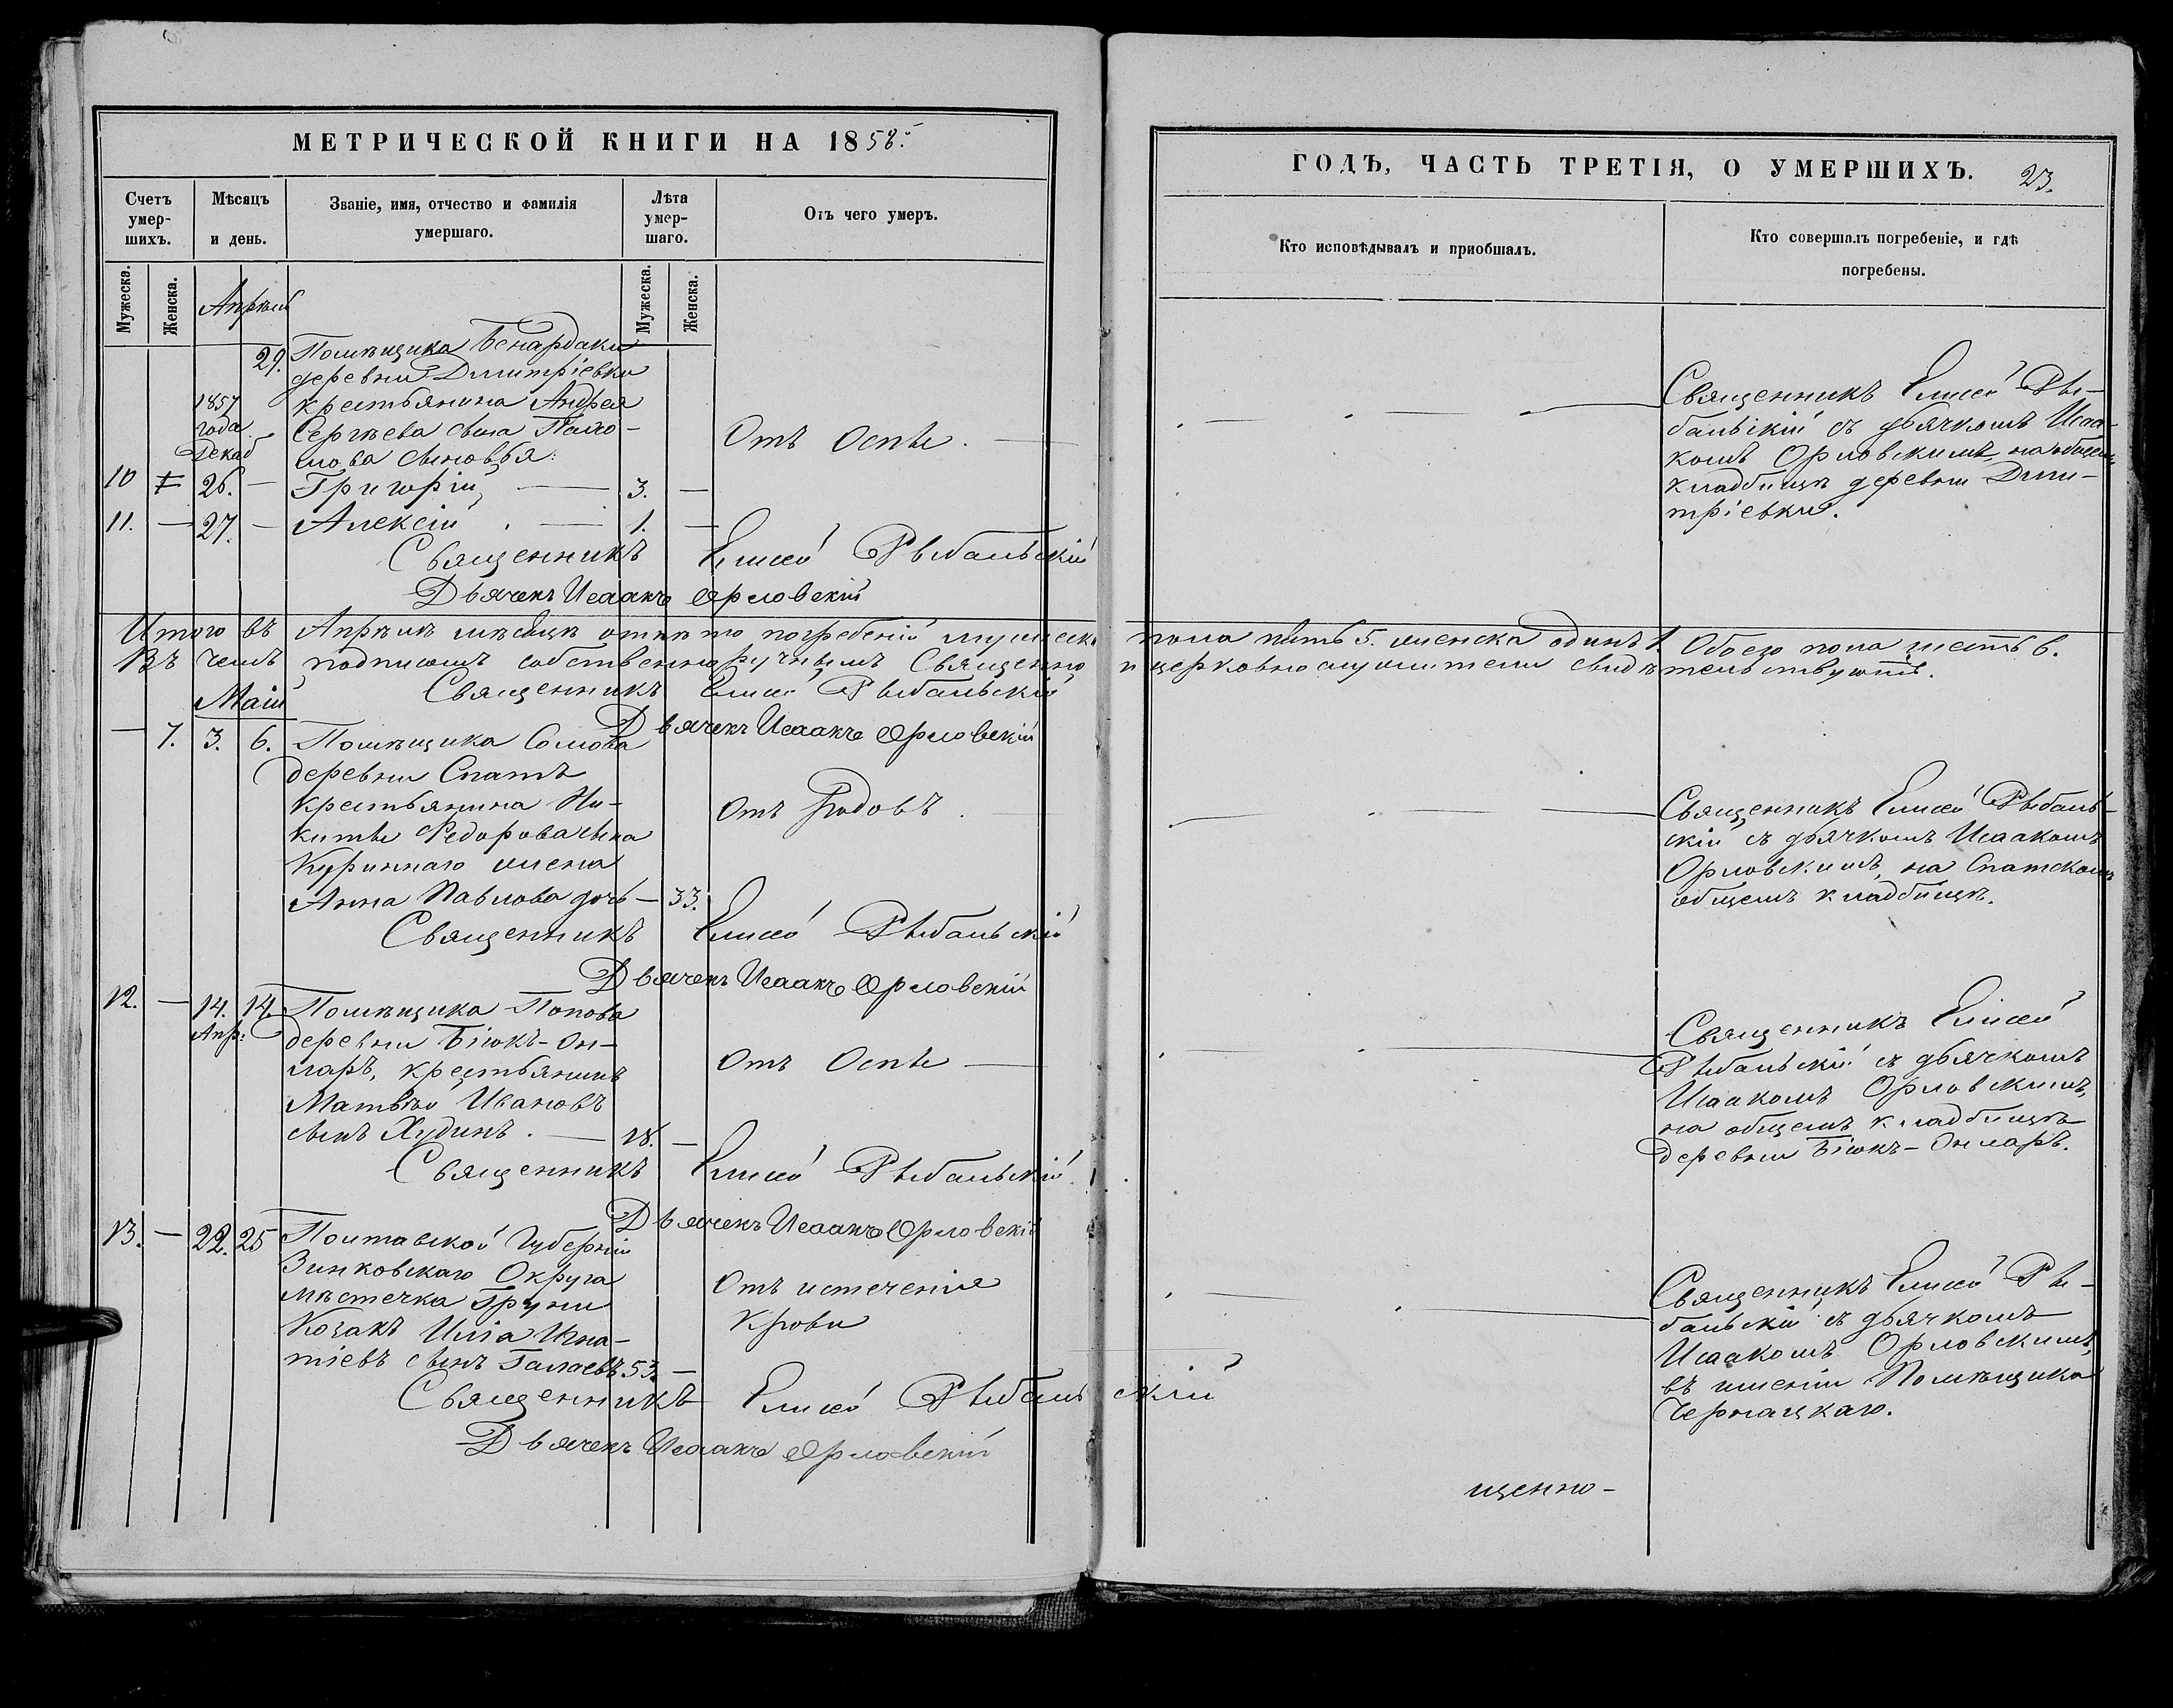 МЕТРИЧЕСКОЙ КНИГИ НА 1858.
Счетъ умер-шихъ.
Мѣсяцъ и день.
Званіе, имя, отчество и фамилія умершаго.
Лѣта умер-шаго.
Отъ чего умеръ.
Мужеска.
Женска.
Мужеска.
Женска.
Апрѣль
29. Помѣщика Бенардаки
деревни Дмитріевки
1857 крестьянина Андрея
года Сергѣева сына
Декаб сыновья: Отъ Оспы.
10 26. Григорій 3.
11. 27. Алексій 1.
Священникъ Елисей Рыбальскій
Дьячекъ Исаакъ Орловскій
Итого въ Апрѣлѣ мѣсяцѣ погребеній мужеска
Въ чемъ подписомъ собственноручнымъ Священно
Священникъ Елисей Рыбальскій
Маій
Дьячекъ Исаакъ Орловскій
7. 3. 6. Помѣщика Сомова
деревни Спатъ
крестьянина Ни-
киты Федорова сына Отъ Родовъ
Куриннаго жена
Анна Павлова дочь 33.
Священникъ Елисей Рыбальскій
Дьячекъ Исаакъ Орловскій
12. 14. 14. Помѣщика Попова
Апр: деревни Біюкъ-Он-
ларъ, крестьянинъ Отъ Оспы
Матвѣй Ивановъ
сынъ Худинъ. 18.
Священникъ Елисей Рыбальскій.
Дьячекъ Исаакъ Орловскій
13. 22. 25 Полтавской Губерніи
Зинковскаго Округа Отъ истеченія
мѣстечка Груни крови
Козакъ Илія Игна-
тіевъ сынъ 53.
Священникъ Елисей Рыбальскій
Дьячекъ Исаакъ Орловскій
ГОДЪ, ЧАСТЬ ТРЕТІЯ, О УМЕРШИХЪ. 23.
Кто исповѣдывалъ и приобщалъ.
Кто совершалъ погребеніе, и гдѣ погребены.
Священникъ Елисей Ры-
бальскій съ дьячкомъ Исаа-
комъ Орловскимъ, на общемъ
кладбищѣ деревни Дми-
тріевки.
пола пять 5. женска одинъ 1. Обоего пола шесть 6.
и церковнослужители свидѣтельствуютъ.
Священникъ Елисей Рыбаль-
скій съ дьячкомъ Исаакомъ
Орловскимъ, на Спатскомъ
общемъ кладбищѣ.
Священникъ Елисей
Рыбальскій съ дьячкомъ
Исаакомъ Орловскимъ,
на общемъ кладбищѣ
деревни Біюкъ-Онларъ.
Священникъ Елисей Ры-
бальскій съ дьячкомъ
Исаакомъ Орловскимъ,
въ имѣніи Помѣщика
щенно-